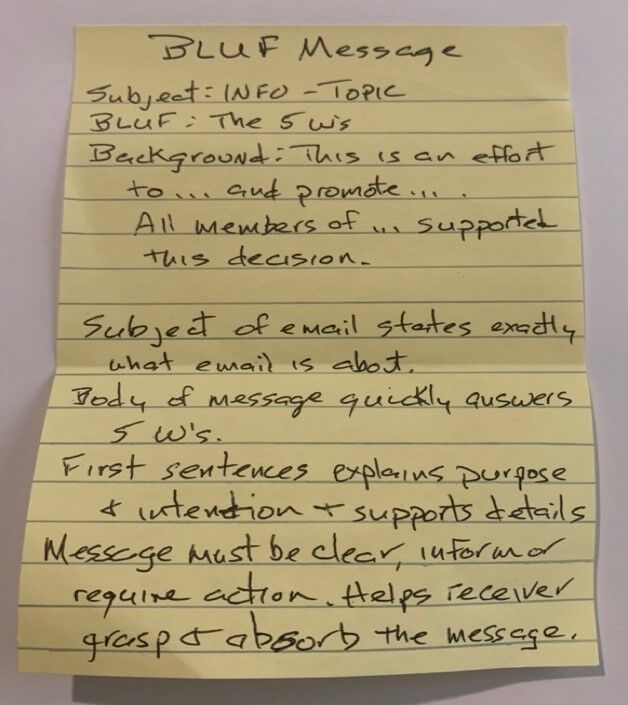 BLUF Message
Subject: INFO - TOPIC
BLUF: The 5 W's
Background: This is an effort
to... and promote... .
All members of ... supported
this decision.
Subject of email states exactly
what email is abot.
Body of message quickly answers
5 W's.
First sentences explains purpose
& intention + supports details
Message must be clear, inform or
require action. Helps receiver
grasp & absorb the message.